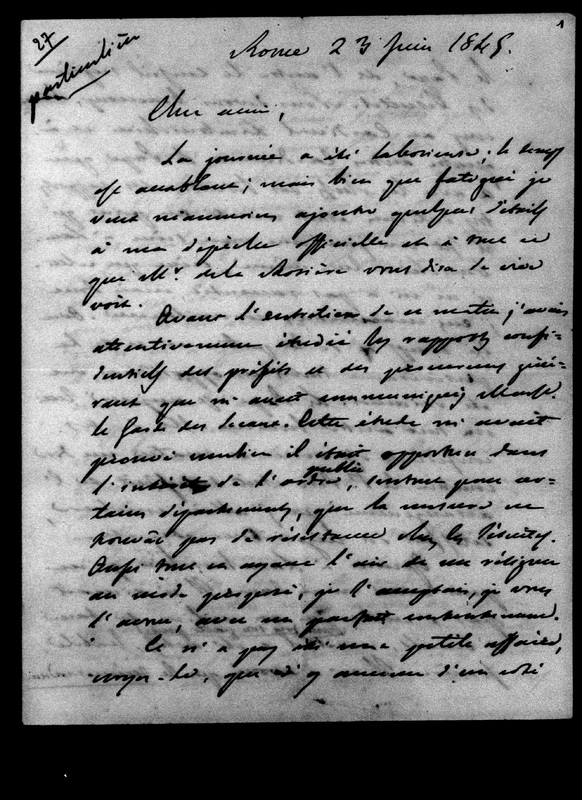 1
27
particulière
Rome 23 juin 1845.
Cher ami,
La journée a été laborieuse; le temps
est accablant; mais bien que fatigué je
veux néanmoins ajouter quelques détails
à ma dépêche officielle et à tout ce
que Mr. de la Rosière vous dira de vive
voix.
Avant l'entretien de ce matin j'avais
attentivement étudié les rapports confi-
dentiels des préfets et des procureurs géné-
raux que m'avait communiqués Monsr.
le Garde des Sceaux. Cette étude m'avait
prouvé combien il était opportun dans
l'intérêt de l'ordre public, surtout pour cer-
tains départements, que la mesure ne
trouvât pas de résistance chez les Jésuites.
Aussi tout en ayant l'air de me résigner
au mode proposé, je l'acceptais, je vous
l'avoue, avec un parfait contentement.
Ce n'a pas été une petite affaire,
croyez-le, que d'y amener d'un côté